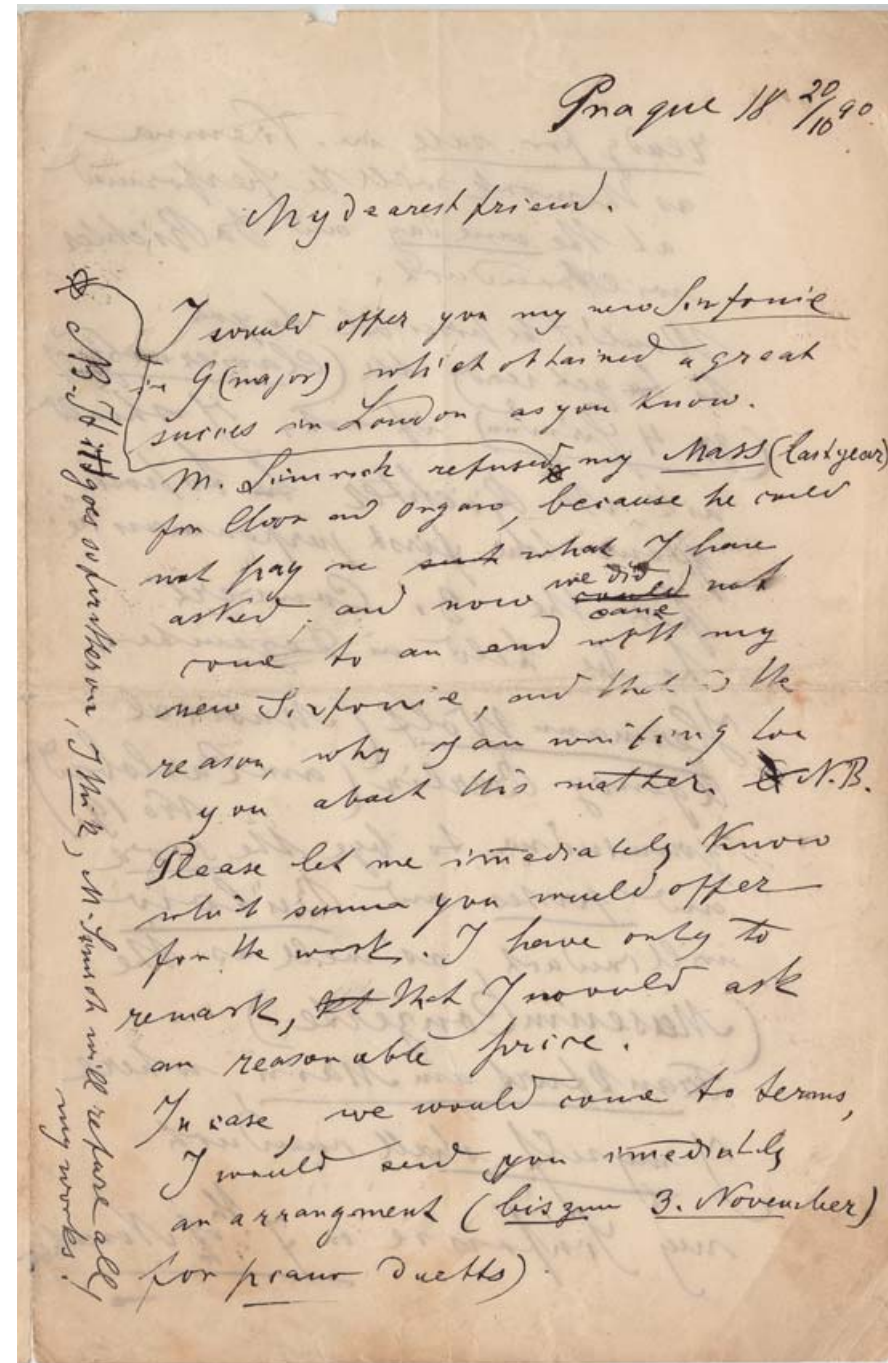 Prague 18 20/10 90.
My dearest friend.
I would offer you my new Sinfonie
in G (major) which obtained a great
succes in London as you know.
M. Simrock refused my Mass (last year)
for Choor and Organo, because he could
not pay me what I have
asked, and now we did not
come to an end with my
new Sinfonie, and that is the
reason, why I am writing to
you about this matter. N.B.
Please let me imediately know
what summa you would offer
for the work. I have only to
remark, that I would ask
an reasonable price.
In case, we would come to terms,
I would send you imediately
an arrangment (bis zum 3. November)
for piano duetts).
NB. If it goes so further on, I think, M. Simrock will refuse all
my works!